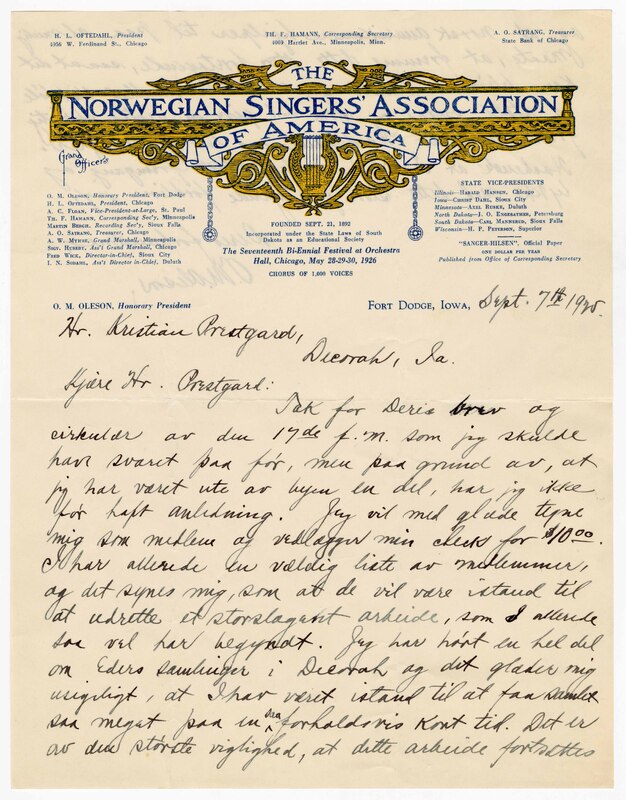 H. L. OFTEDAHL, President
4356 W. Ferdinand St., Chicago
TH. F. HAMANN, Corresponding Secretary
4009 Harriet Ave., Minneapolis, Minn.
A. O. SATRANG, Treasurer
State Bank of Chicago
THE
NORWEGIAN SINGERS' ASSOCIATION
OF AMERICA
Grand Officers
O. M. OLESON, Honorary President, Fort Dodge
H. L. OFTEDAHL, President, Chicago
A. C. FLOAN, Vice-President-at-Large, St. Paul
TH. F. HAMANN, Corresponding Sec'y, Minneapolis
MARTIN BERGH, Recording Sec'y, Sioux Falls
A. O. SATRANG, Treasurer, Chicago
A. W. MYHRE, Grand Marshall, Minneapolis
SIGV. HUSEBY, Ass't Grand Marshall, Chicago
FRED WICK, Director-in-Chief, Sioux City
I. N. SODAHL, Ass't Director-in-Chief, Duluth
FOUNDED SEPT. 21, 1892
Incorporated under the State Laws of South
Dakota as an Educational Society
The Seventeenth Bi-Ennial Festival at Orchestra
Hall, Chicago, May 28-29-30, 1926
CHORUS OF 1,000 VOICES
STATE VICE-PRESIDENTS
Illinois—HARALD HANSEN, Chicago
Iowa—CHRIST DAHL, Sioux City
Minnesota—AXEL RUSEK, Duluth
North Dakota—I. O. ENGESATHER, Petersburg
South Dakota—CARL MANNERUD, Sioux Falls
Wisconsin—H. P. PETERSON, Superior
"SANGER-HILSEN", Official Paper
ONE DOLLAR PER YEAR
Published from Office of Corresponding Secretary
O. M. OLESON, Honorary President
FORT DODGE, IOWA, Sept. 7th 1925.
Hr. Kristian Prestgard,
Decorah, Ia.
Kjære Hr. Prestgard:
Tak for Deres brev og
cirkulær av den 17de f.m. som jeg skulde
have svaret paa før, men paa grund av, at
jeg har været ute av byen en del, har jeg ikke
før haft anledning. Jeg vil med glæde tegne
mig som medlem og vedlægger min check for $10.00.
I har allerede en vældig liste av medlemmer,
og det synes mig, som at de vil være istand til
at udrette et storslagent arbeide, som I allerede
saa vel har begyndt. Jeg har hørt en hel del
om Eders samlinger i Decorah og det glæder mig
usigeligt, at I har været istand til at faa samlet
saa meget paa en saa forholdsvis kort tid. Det er
av den største vigtighed, at dette arbeide fortsættes